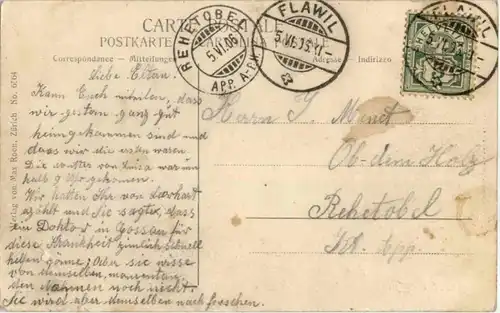 CARTE POSTALE
POSTKARTE
Correspondance — Mitteilungen
Adresse — Indirizzo
REHETOBEL
5.VI.06
FLAWIL
FLAWIL
Liebe Eltern.
Kann Euch mitteilen, dass
wir gestern ganz gut
heimgekommen sind und
dass wir die ersten waren.
Die von Luisa war um
halb 9 Uhr gekommen.
Wir hatten Ihr von
und Sie sagte, dass
ein Doktor in Gossau für
diese Krankheit ziemlich schnell
helfen könne; Aber sie wisse
von demselben momentan
den Nahmen noch nicht.
Sie wird aber demselben nachforschen.
Herrn J.
Ob-dem Holz
Rehetobel
Kt. App.
Verlag von Max Zürich No. 6204